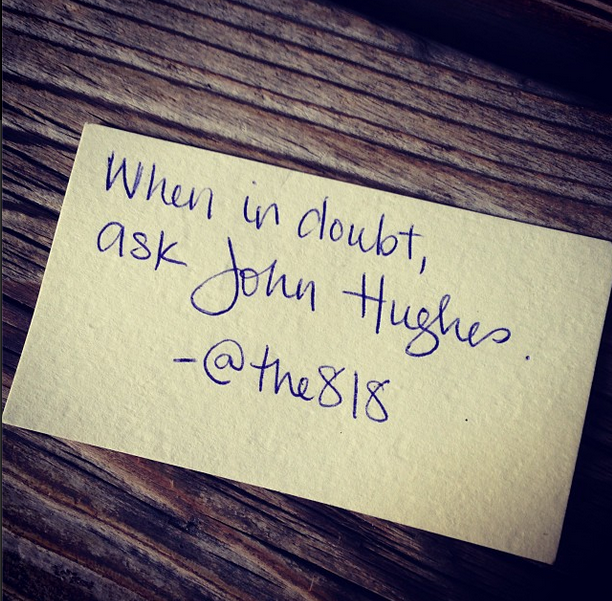 When in doubt,
ask John Hughes.
-@the818